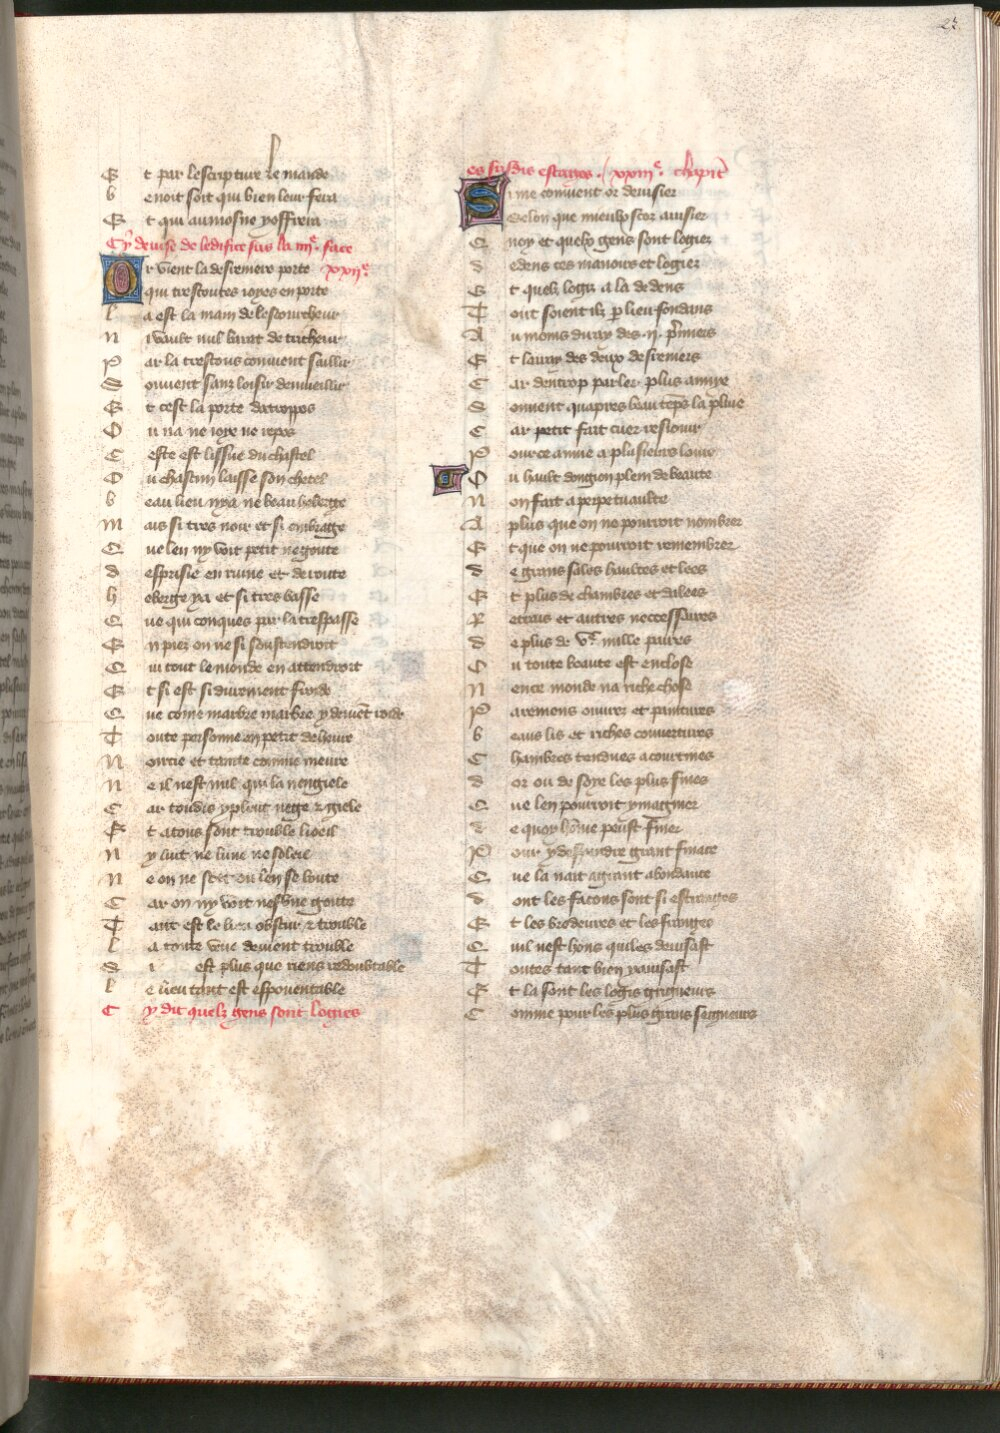 27
Et par lescripture le mande
benoit soit qui bien leur fera
Et qui aumosne y offrera
Cy devise de ledifice sus la iiiiᵉ. face
Or vient la desreniere porte xxiiᵉ
qui trestoutes ioyes en porte
La est la main de lescourcheur
ni vault nul barat de tricheur
Par la trestous convient saillir
Souvent sanz loisir de
Et cest la porte datroppos
Ou na ne ioye ne repos
Ceste est lissue du chastel
Ou chascun laisse son chetel
beau lieu ny a ne beau heberge
mais si tres noir et si embraige
Que len ny voit petit ne goute
desprisie en ruine et deroute
heberge y a et si tres basse
Que qui conques par la trespasse
En piez on ne si soustendroit
Qui tout le monde en attendroit
Et si est si durement froide
Que come marbre marbre y devient roide
Toute personne en petit deheure
Noircie et tainte comme meure
Ne il nest nul qui la nengiele
Car toudis y pleut nege & giele
Et a tous sont trouble li oeil
Ny luit ne lune ne soleil
Ne on ne scet ou len se boute
Car on ny voit nesune goute
Tant est le lieu obscur & trouble
La toute veue devient trouble
Si est plus que riens redoubtable
Le lieu tant est espouentable
Cy dit quelz gens sont logies
es susdis estages. xxiiiᵉ. chapitᵉ
Si me convient or devisier
Selon que mieulx scor avisier
Quoy et quelx gens sont logiez
dedens ces manoirs et logiez
Et quelz logis a la dedens
Tout soient ilz p lieu fondans
Au moins diray des .ii. pmiers
Et lairay des deux desreniers
Car dentrop parler plus anuye
Souvent quapres beau temps la pluie
Car petit fait cuer resiouir
Pour ce anuie a plusieurs louir
Ou hault dongion plein de beaute
Non fait a perpetuaulte
A plus que on ne pourroit nombrer
Et que on ne pourroit remembrer
de grans sales haultes et lees
Et plus de chambres et dalees
Retrais et autres neccessaires
de plus de vᶜ. mille paires
Ou toute beaute est enclose
Nen ce monde na riche chose
Paremens ouvrez et paintures
beaus lis et riches couvertures
Chambres tendues a courtines
dor ou de soye les plus fines
Que len pourroit ymaginer
de quoy hõme peust finer
Pour y despendre grant finace
Que la nait a grant abondance
dont les facons sont si estranges
Et les brodeures et les franges
Quil nest hons qui les devisast
Toutes tant bien y avisast
Et la sont les logis greigneurs
Comme pour les plus grans seigneurs